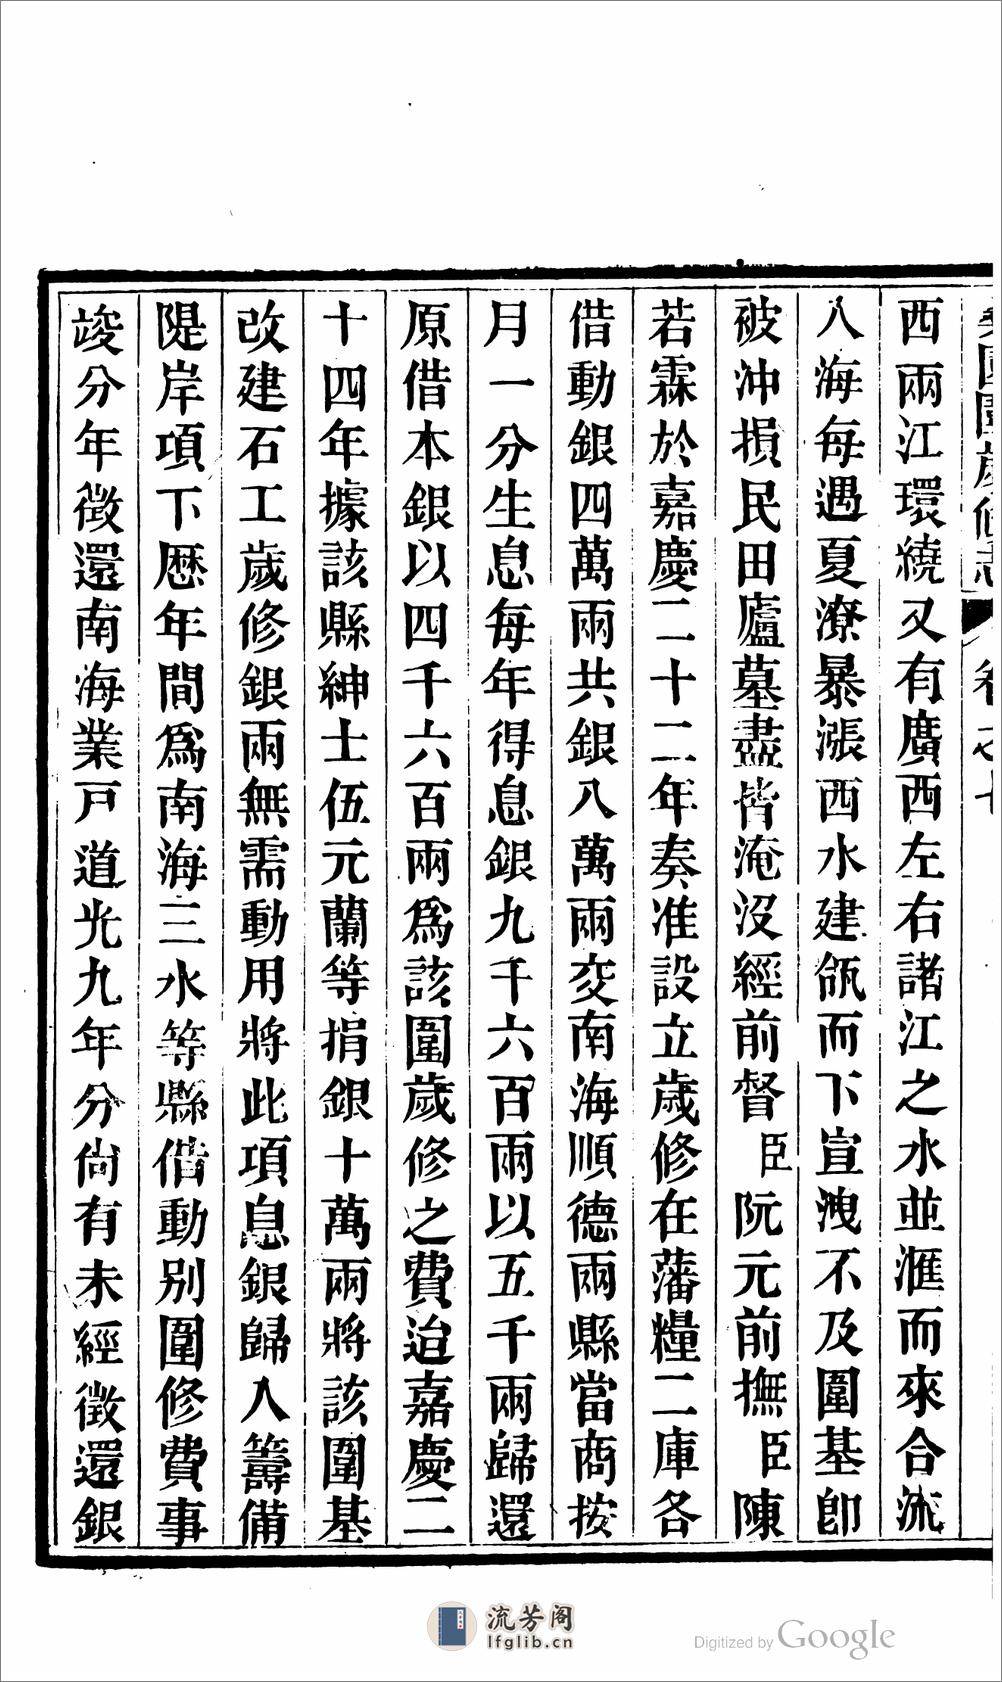 西兩江環繞又有廣西左右諸江之水並滙而來合流
入海每遇夏潦暴漲西水建瓴而下宣洩不及圍基卽
被沖損民田廬墓盡皆淹沒經前督臣阮元前撫臣陳
若霖於嘉慶二十二年奏准設立歲修在藩糧二庫各
借動銀四萬兩共銀八萬兩交南海順德兩縣當商按
月一分生息每年得息銀九千六百兩以五千兩歸還
原借本銀以四千六百兩爲該圍歲修之費迨嘉慶二
十四年據該縣紳士伍元蘭等捐銀十萬兩將該圍基
改建石工歲修銀兩無需動用將此項息銀歸入籌備
隄岸項下歷年間爲南海三水等縣借動別圍修費事
竣分年徵還南海業戸道光九年分尚有未經徵還銀
流芳阁
lfglib.cn
Digitized by Google